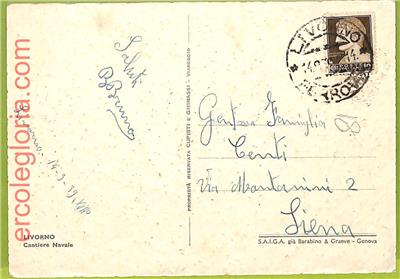 ercolegloria.com
Saluti
B Bruno
Livorno - 14-9-39 XVII
LIVORNO
Cantiere Navale
PROPRIETÀ RISERVATA CUPISTI E GHIMASSI - VIAREGGIO
LIVORNO
Gent.ma Famiglia
Centi
Via Montanini 2
Siena
S.A.I.G.A. già Barabino & Graeve - Genova